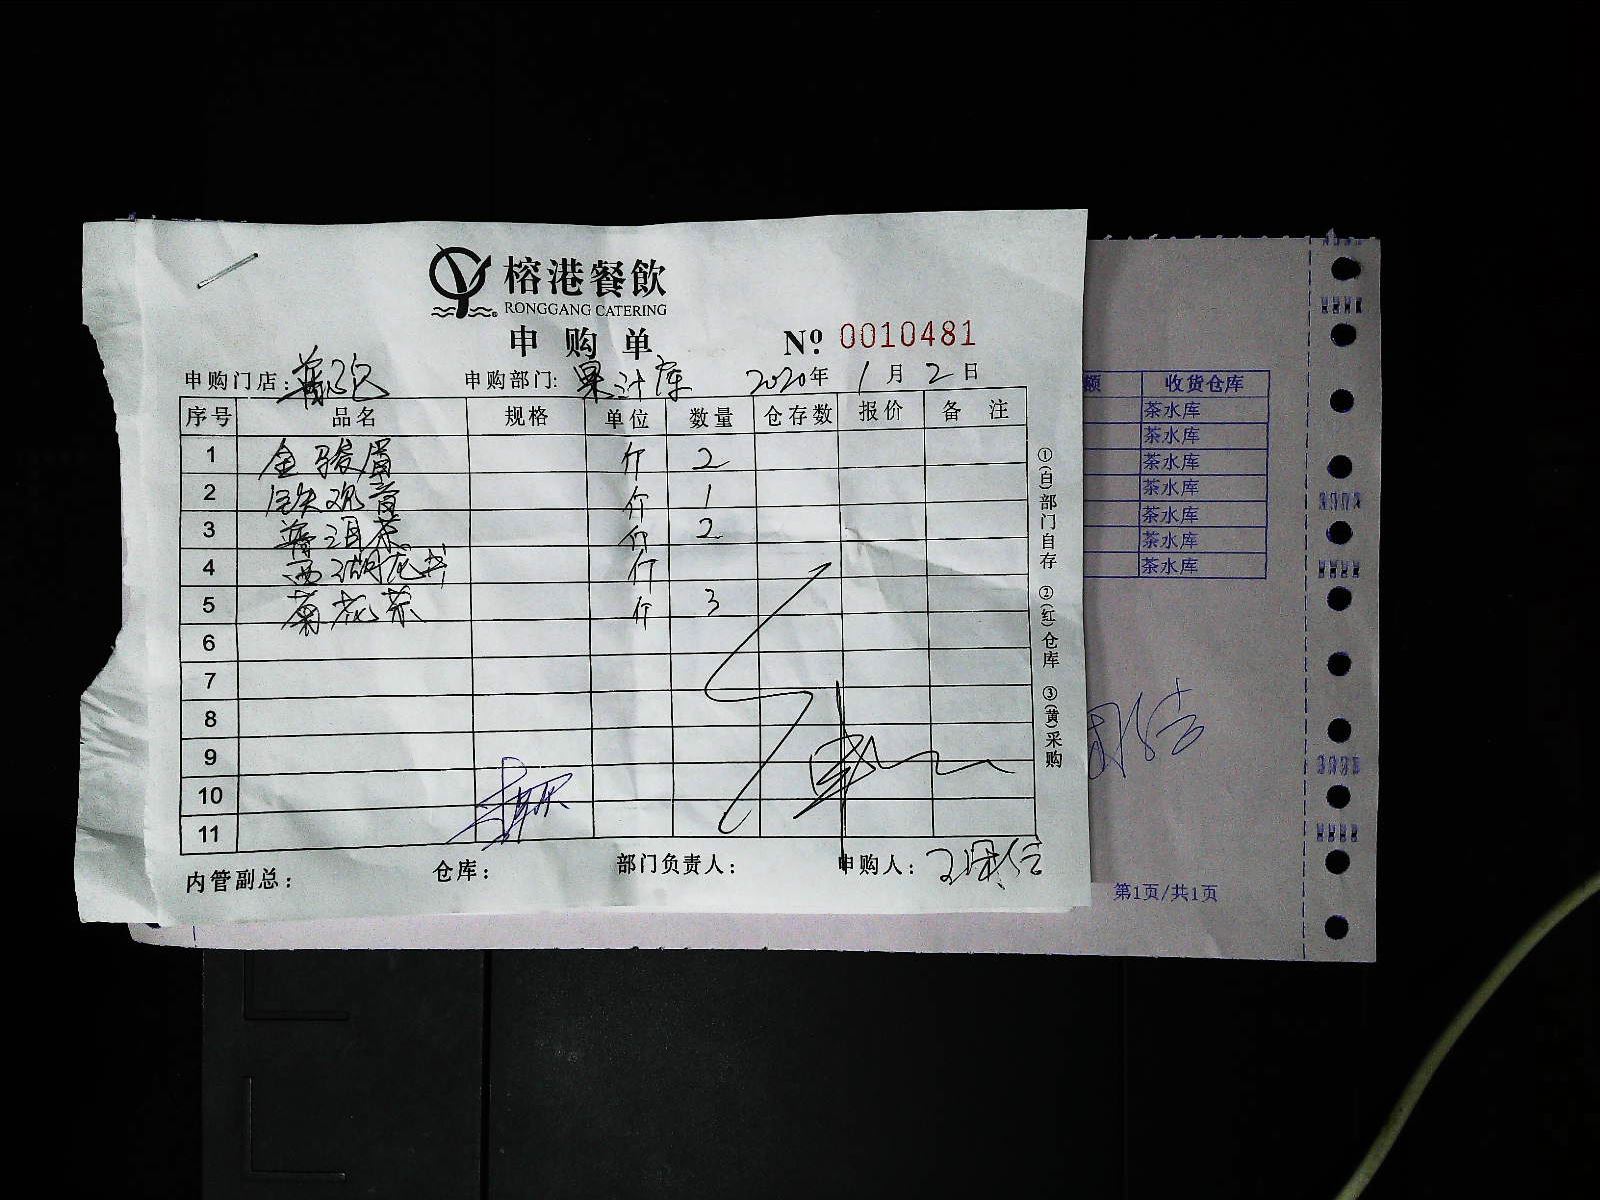 榕港餐飲
RONGGANG CATERING
申购单 Nº 0010481
申购门店： 申购部门: 果汁库 2020年 1月 2日
序号 品名 规格 单位 数量 仓存数 报价 备注
1 金骏眉 斤 2
2 铁观音 斤 1
3 普洱茶 斤 2
4 西湖龙井 斤
5 菊花茶 斤 3
6
7
8
9
10
11
内管副总： 仓库： 部门负责人： 申购人：
①(白)部门自存 ②(红)仓库 ③(黄)采购
额 收货仓库
茶水库
茶水库
茶水库
茶水库
茶水库
茶水库
茶水库
第1页/共1页